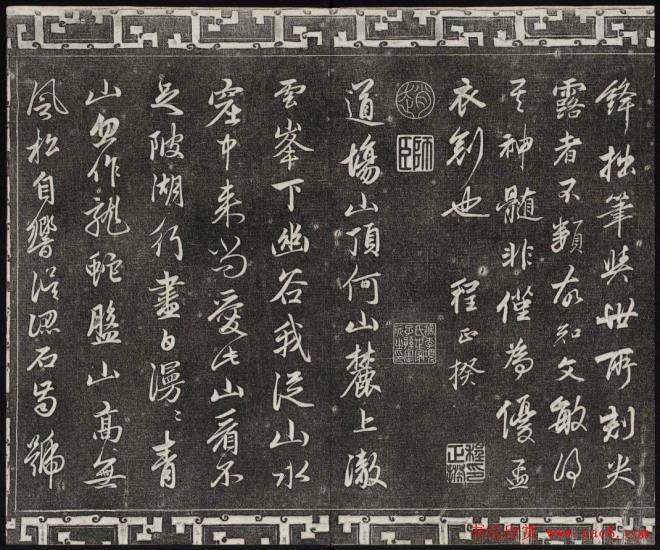 鋒拙筆與世所刻尖
露者不類故知文敏得
其神髓非僅為優孟
衣冠也 程正揆
道塲山頂何山麓上澈
雲峯下幽谷我從山水
窟中来尚愛此山看不
足陂湖行盡白漫〻青
山忽作龍蛇盤山高無
風松自響誤認石齒號
书法欣赏 www.yac8.com